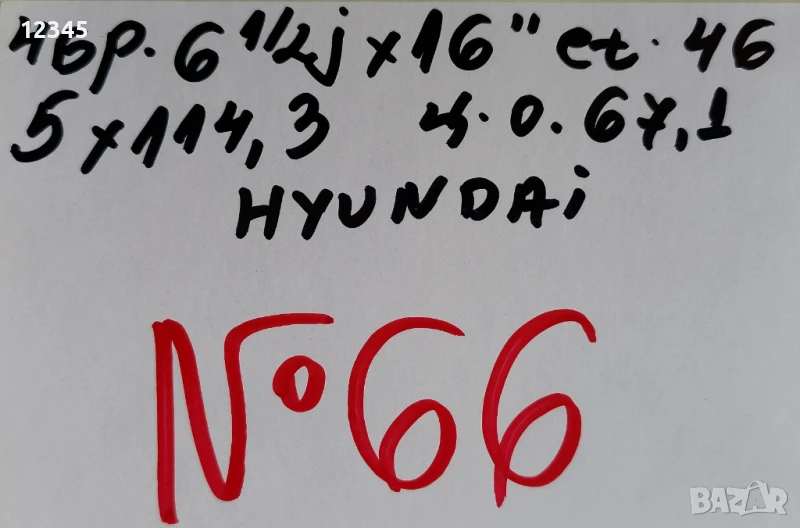 12345
4бр. 6 1/2j x 16" et. 46
5 x 114,3 ц.о. 67,1
HYUNDAi
№66
BAZAR